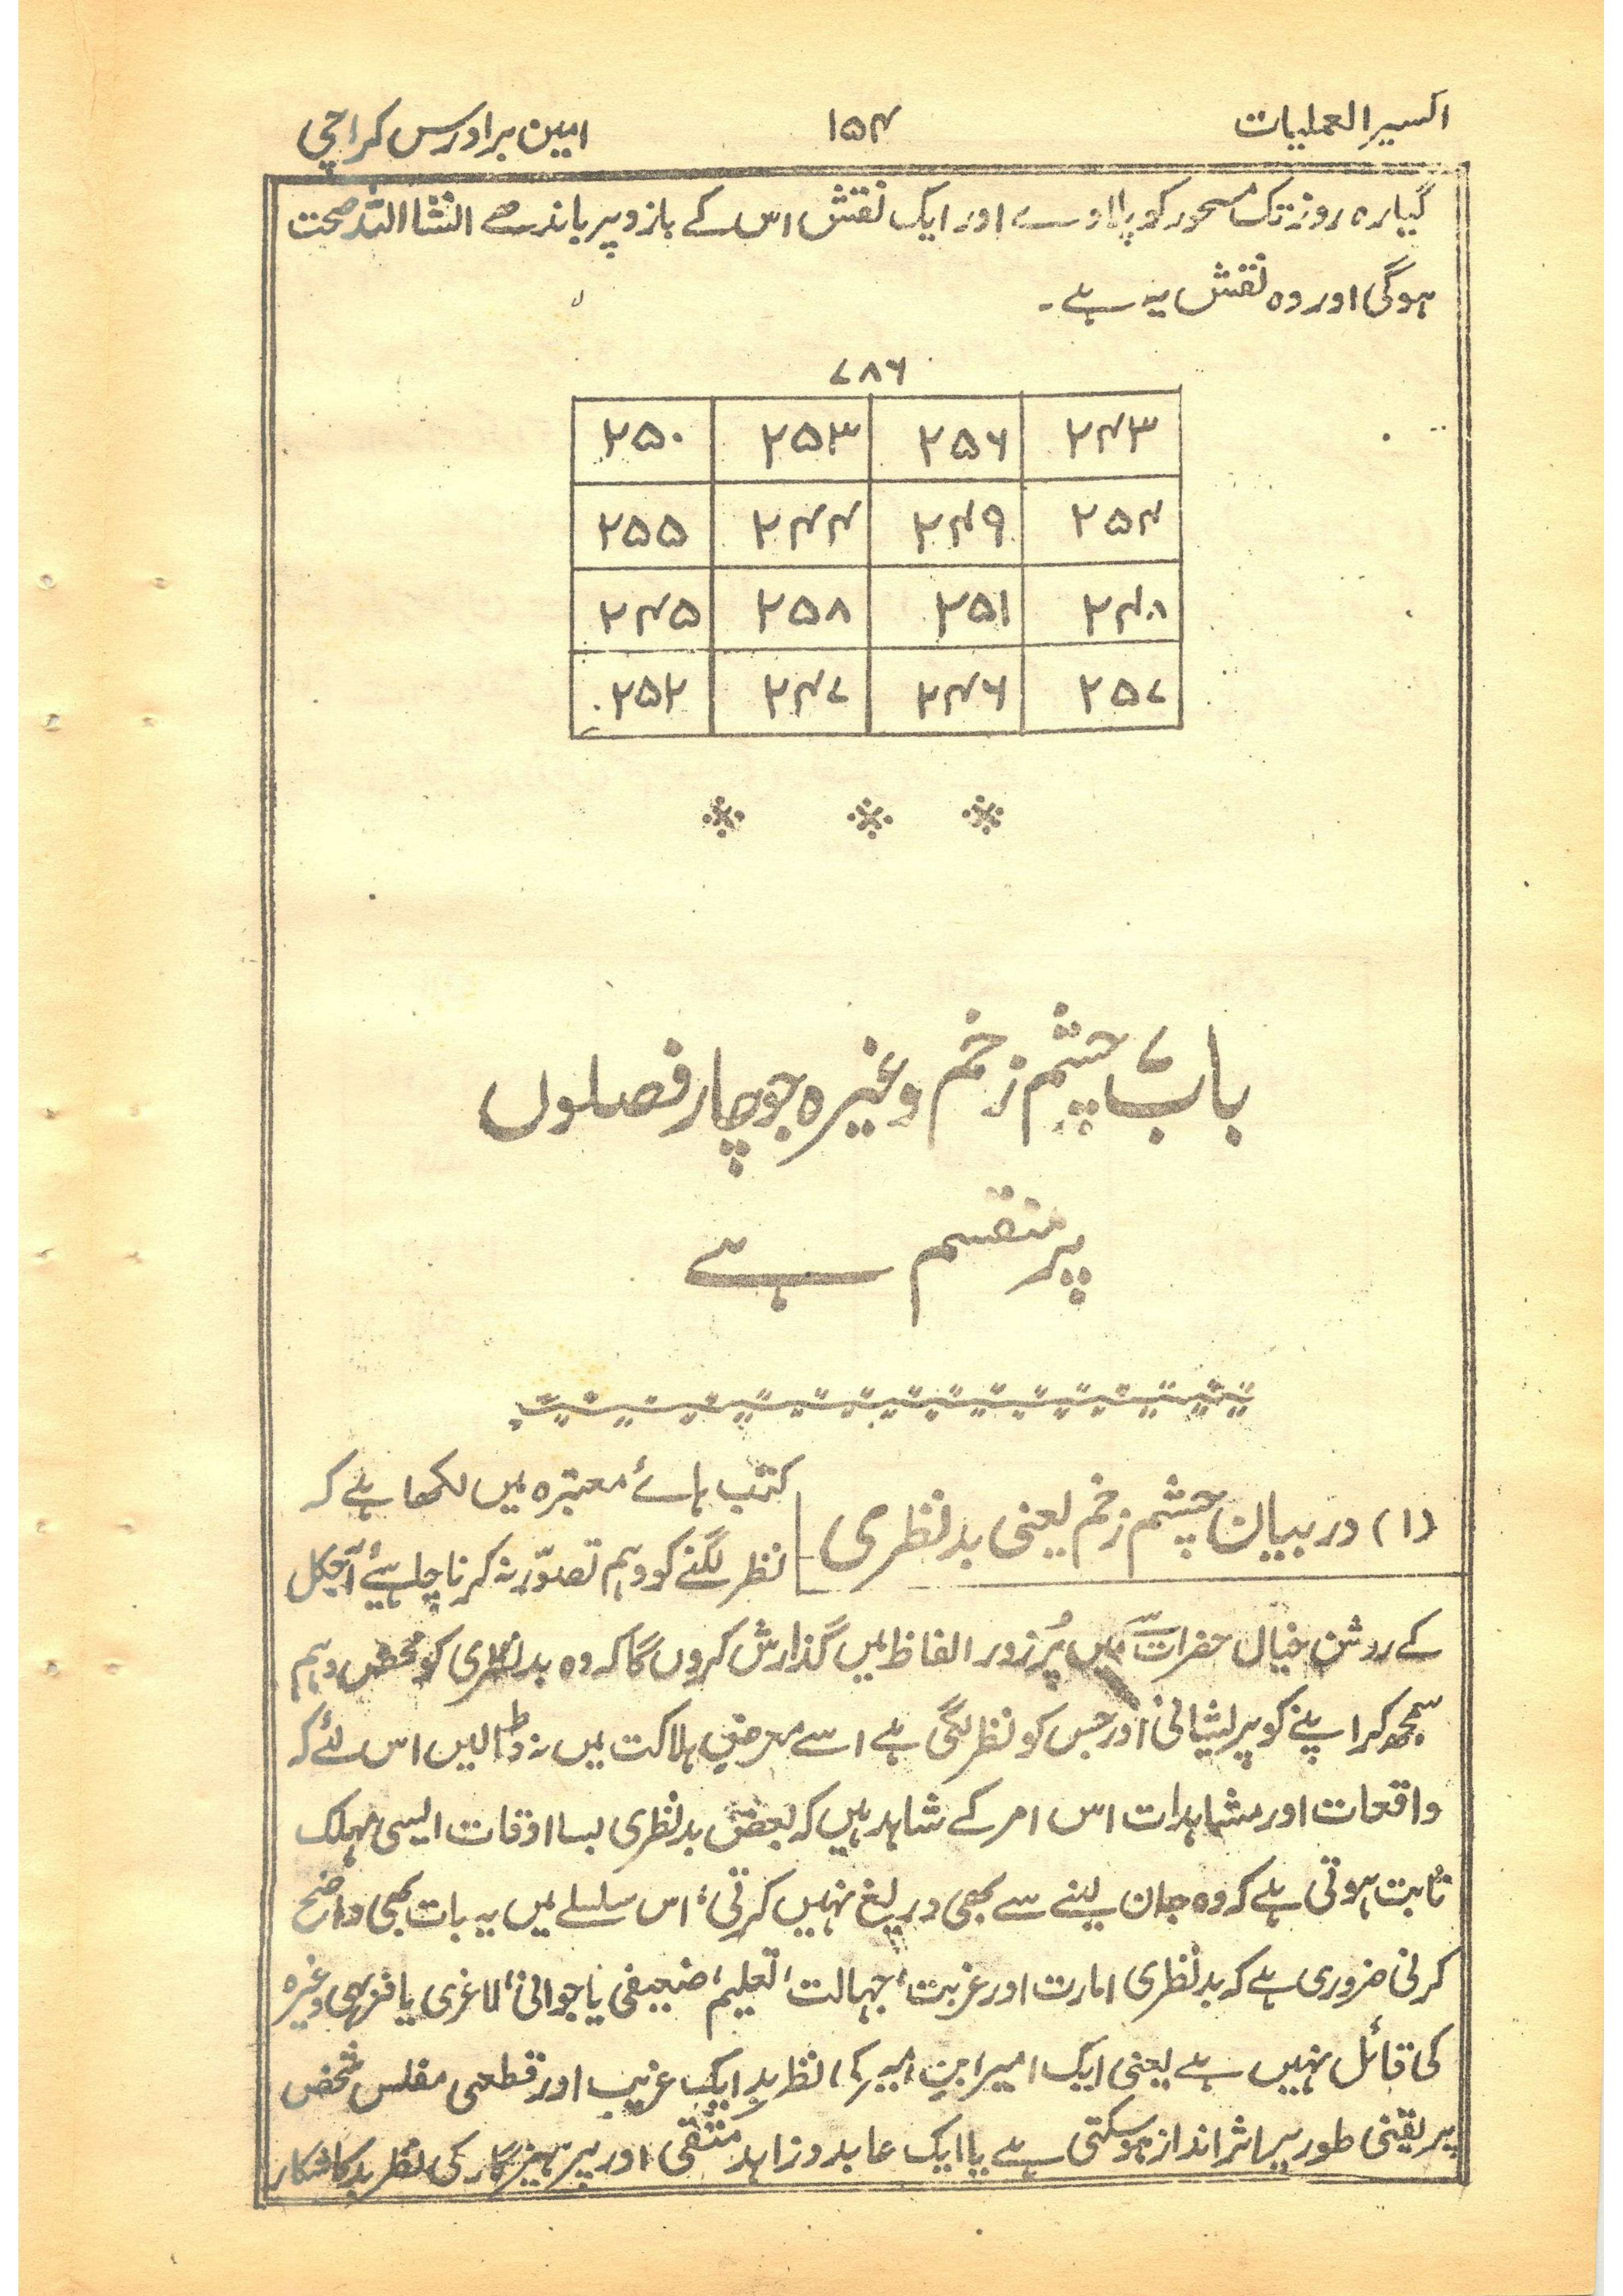 اکسیر العملیات ۱۵۴ امین برادرس کراچی
گیارہ روز تک مسحور کو پلاوے اور ایک نقش اس کے بازو پر باندھے انشااللہ صحت
ہوگی اور وہ نقش یہ ہے۔
۷۸۶
۲۴۳ ۲۵۶ ۲۵۳ ۲۵۰
۲۵۴ ۲۴۹ ۲۴۴ ۲۵۵
۲۴۸ ۲۵۱ ۲۵۸ ۲۴۵
۲۵۷ ۲۴۶ ۲۴۷ ۲۵۲
باب ۷ چشم زخم وغیرہ جو چار فصلوں
پر منقسم ہے
(۱) در بیان چشم زخم یعنی بد نظری
کتب ہائے معتبرہ میں لکھا ہے کہ
نظر لگنے کو وہم تصوّر نہ کرنا چاہیئے آجکل
کے روشن خیال حضرات سے میں پُر زور الفاظ میں گذارش کروں گا کہ وہ بد نظری کو محض وہم
سمجھ کر اپنے کو پریشانی اور جس کو نظر لگی ہے اسے معرضِ ہلاکت میں نہ ڈالیں اس لئے کہ
واقعات اور مشاہدات اس امر کے شاہد ہیں کہ بعض بدنظری بسا اوقات ایسی مہلک
ثابت ہوتی ہے کہ وہ جان لینے سے بھی دریغ نہیں کرتی، اس سلسلے میں یہ بات بھی واضح
کرنی ضروری ہے کہ بدنظری امارت اور غربت، جہالت، تعلیم، ضعیفی یا جوانی، لاغری یا فربہی وغیرہ
کی قائل نہیں ہے یعنی ایک امیر ابن امیر کی نظر بد ایک غریب اور قطعی مفلس شخص
پر یقینی طور پر اثر انداز ہوسکتی ہے یا ایک عابد و زاہد متقی اور پرہیزگار کی نظر بد کا شکار